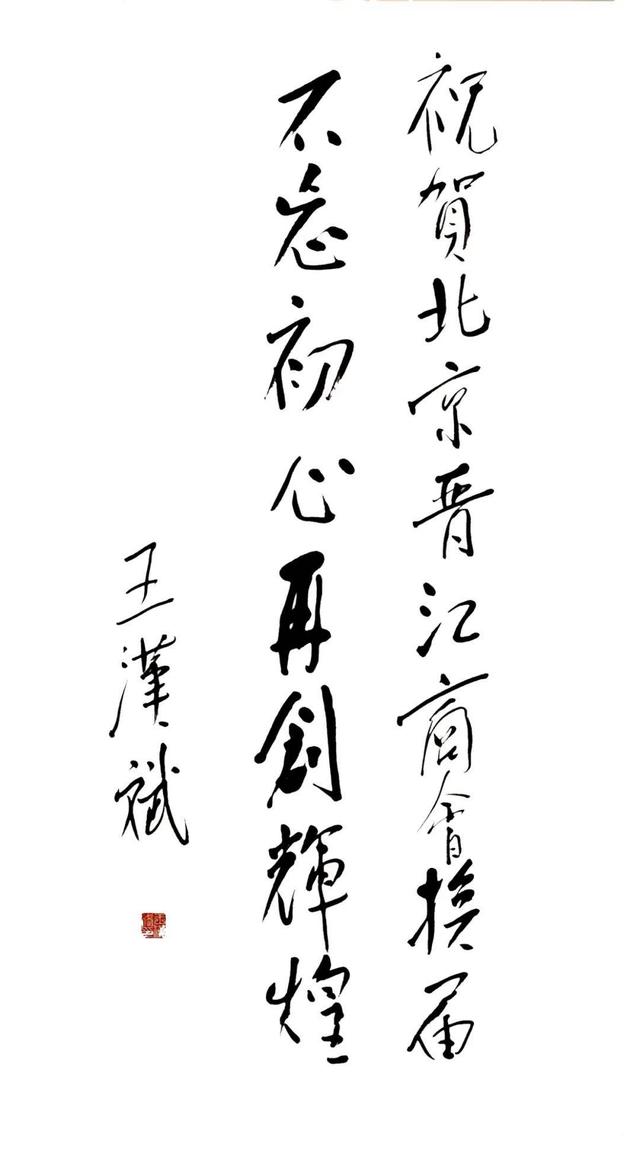 祝賀北京晋江商會換届
不忘初心再創輝煌
王漢斌